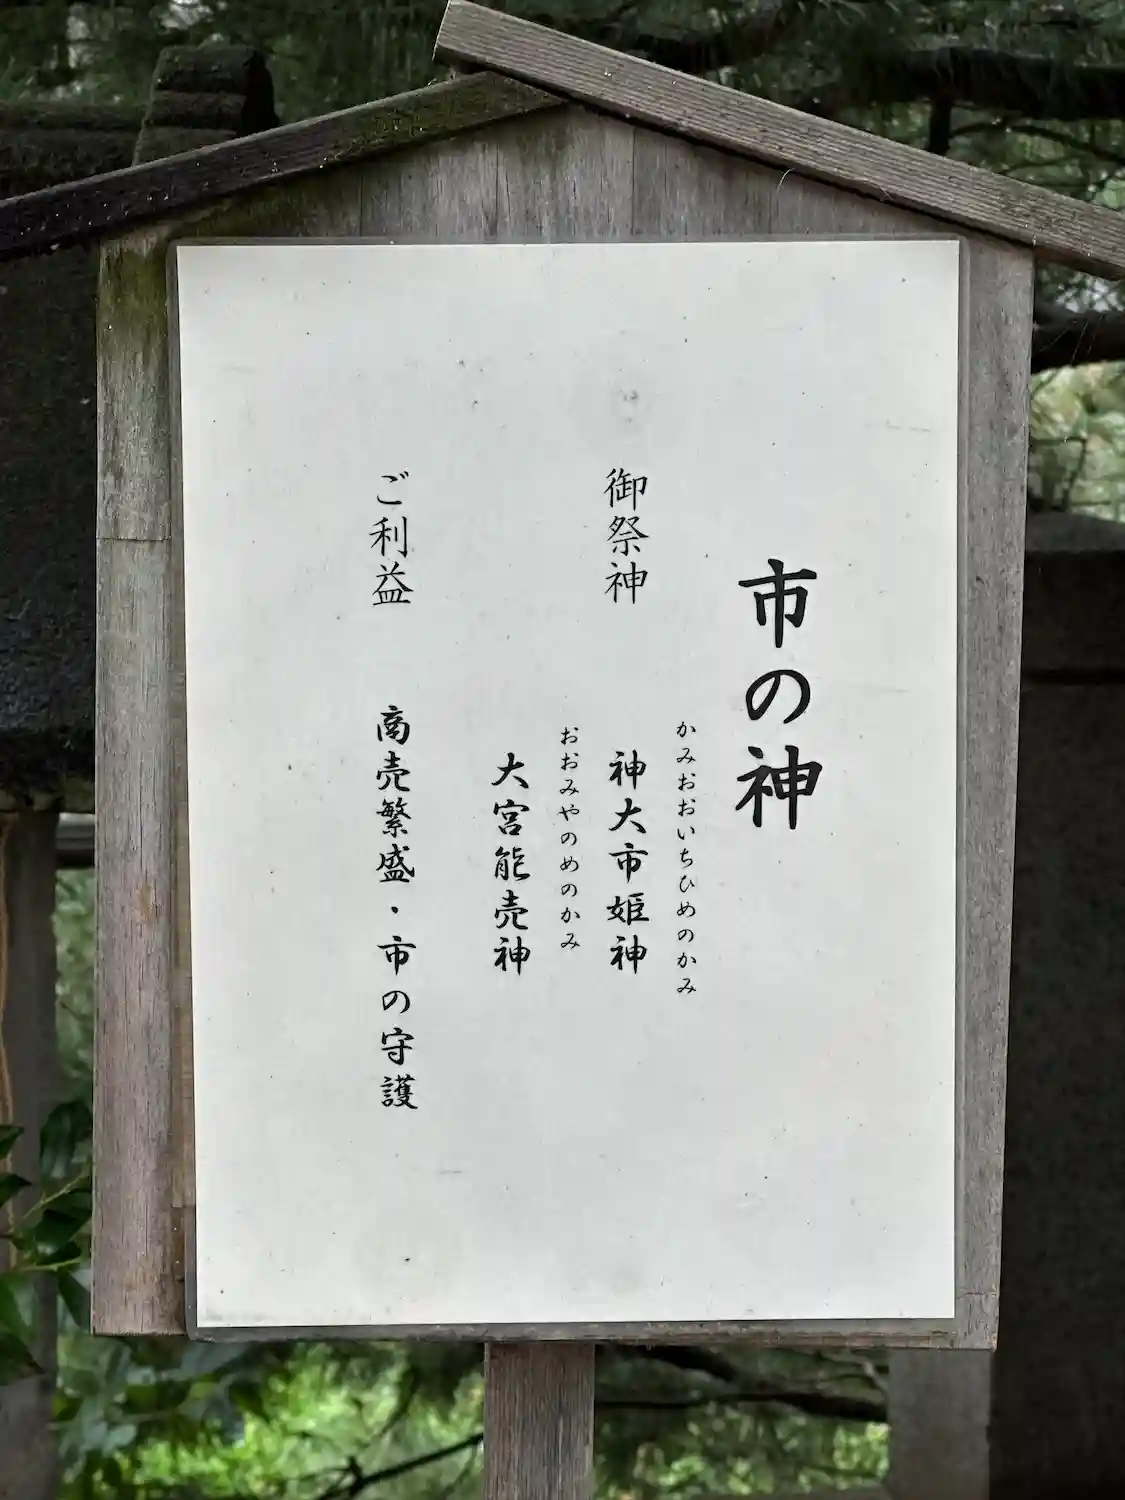 市の神
御祭神
かみおおいちひめのかみ
神大市姫神
おおみやのめのかみ
大宮能売神
ご利益
商売繁盛・市の守護